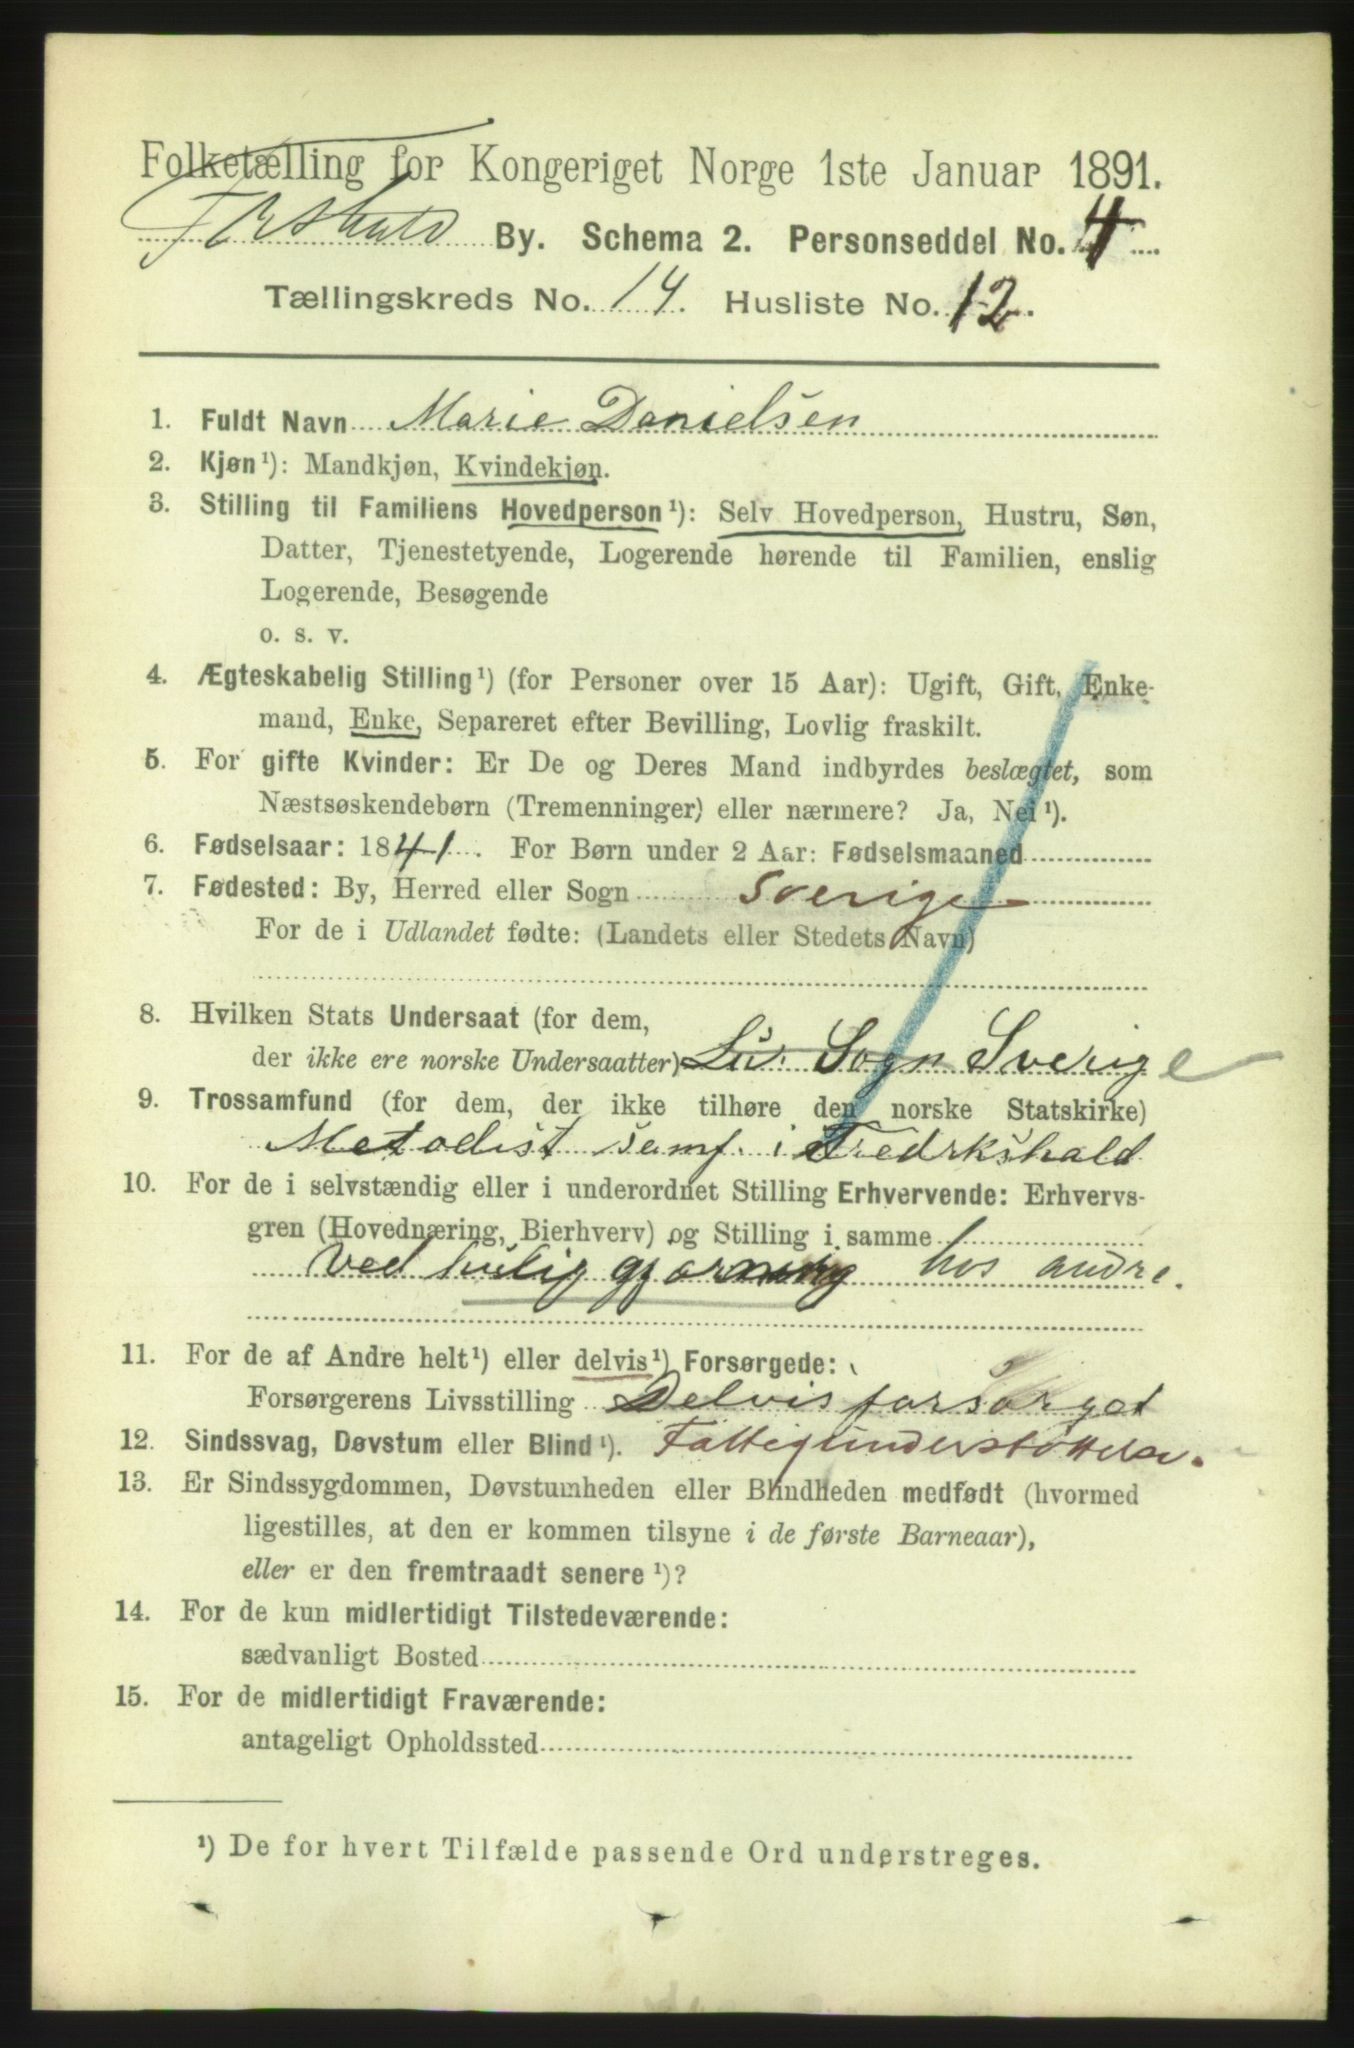 Folketælling for Kongeriget Norge 1ste Januar 1891.
Frkshald By. Schema 2. Personseddel No. 4
Tællingskreds No. 14. Husliste No. 12.
1. Fuldt Navn Marie Danielsen
2. Kjøn¹): Mandkjøn, Kvindekjøn.
3. Stilling til Familiens Hovedperson¹): Selv Hovedperson, Hustru, Søn,
Datter, Tjenestetyende, Logerende hørende til Familien, enslig
Logerende, Besøgende
o. s. v.
4. Ægteskabelig Stilling¹) (for Personer over 15 Aar): Ugift, Gift, Enke-
mand, Enke, Separeret efter Bevilling, Lovlig fraskilt.
5. For gifte Kvinder: Er De og Deres Mand indbyrdes beslægtet, som
Næstsøskendebørn (Tremenninger) eller nærmere? Ja, Nei¹).
6. Fødselsaar: 1841. For Børn under 2 Aar: Fødselsmaaned
7. Fødested: By, Herred eller Sogn Sverige
For de i Udlandet fødte: (Landets eller Stedets Navn)
8. Hvilken Stats Undersaat (for dem,
der ikke ere norske Undersaatter) Sogn Sverige
9. Trossamfund (for dem, der ikke tilhøre den norske Statskirke)
Metodist samf. i Fredrkshald
10. For de i selvstændig eller i underordnet Stilling Erhvervende: Erhvervs-
gren (Hovednæring, Bierhverv) og Stilling i samme
Ved huslig gjørning hos andre.
11. For de af Andre helt¹) eller delvis¹) Forsørgede:
Forsørgerens Livsstilling Delvis forsørget
12. Sindssvag, Døvstum eller Blind¹). Fattigunderstøttelse.
13. Er Sindssygdommen, Døvstumheden eller Blindheden medfødt (hvormed
ligestilles, at den er kommen tilsyne i de første Barneaar),
eller er den fremtraadt senere¹)?
14. For de kun midlertidigt Tilstedeværende:
sædvanligt Bosted
15. For de midlertidigt Fraværende:
antageligt Opholdssted
¹) De for hvert Tilfælde passende Ord understreges.